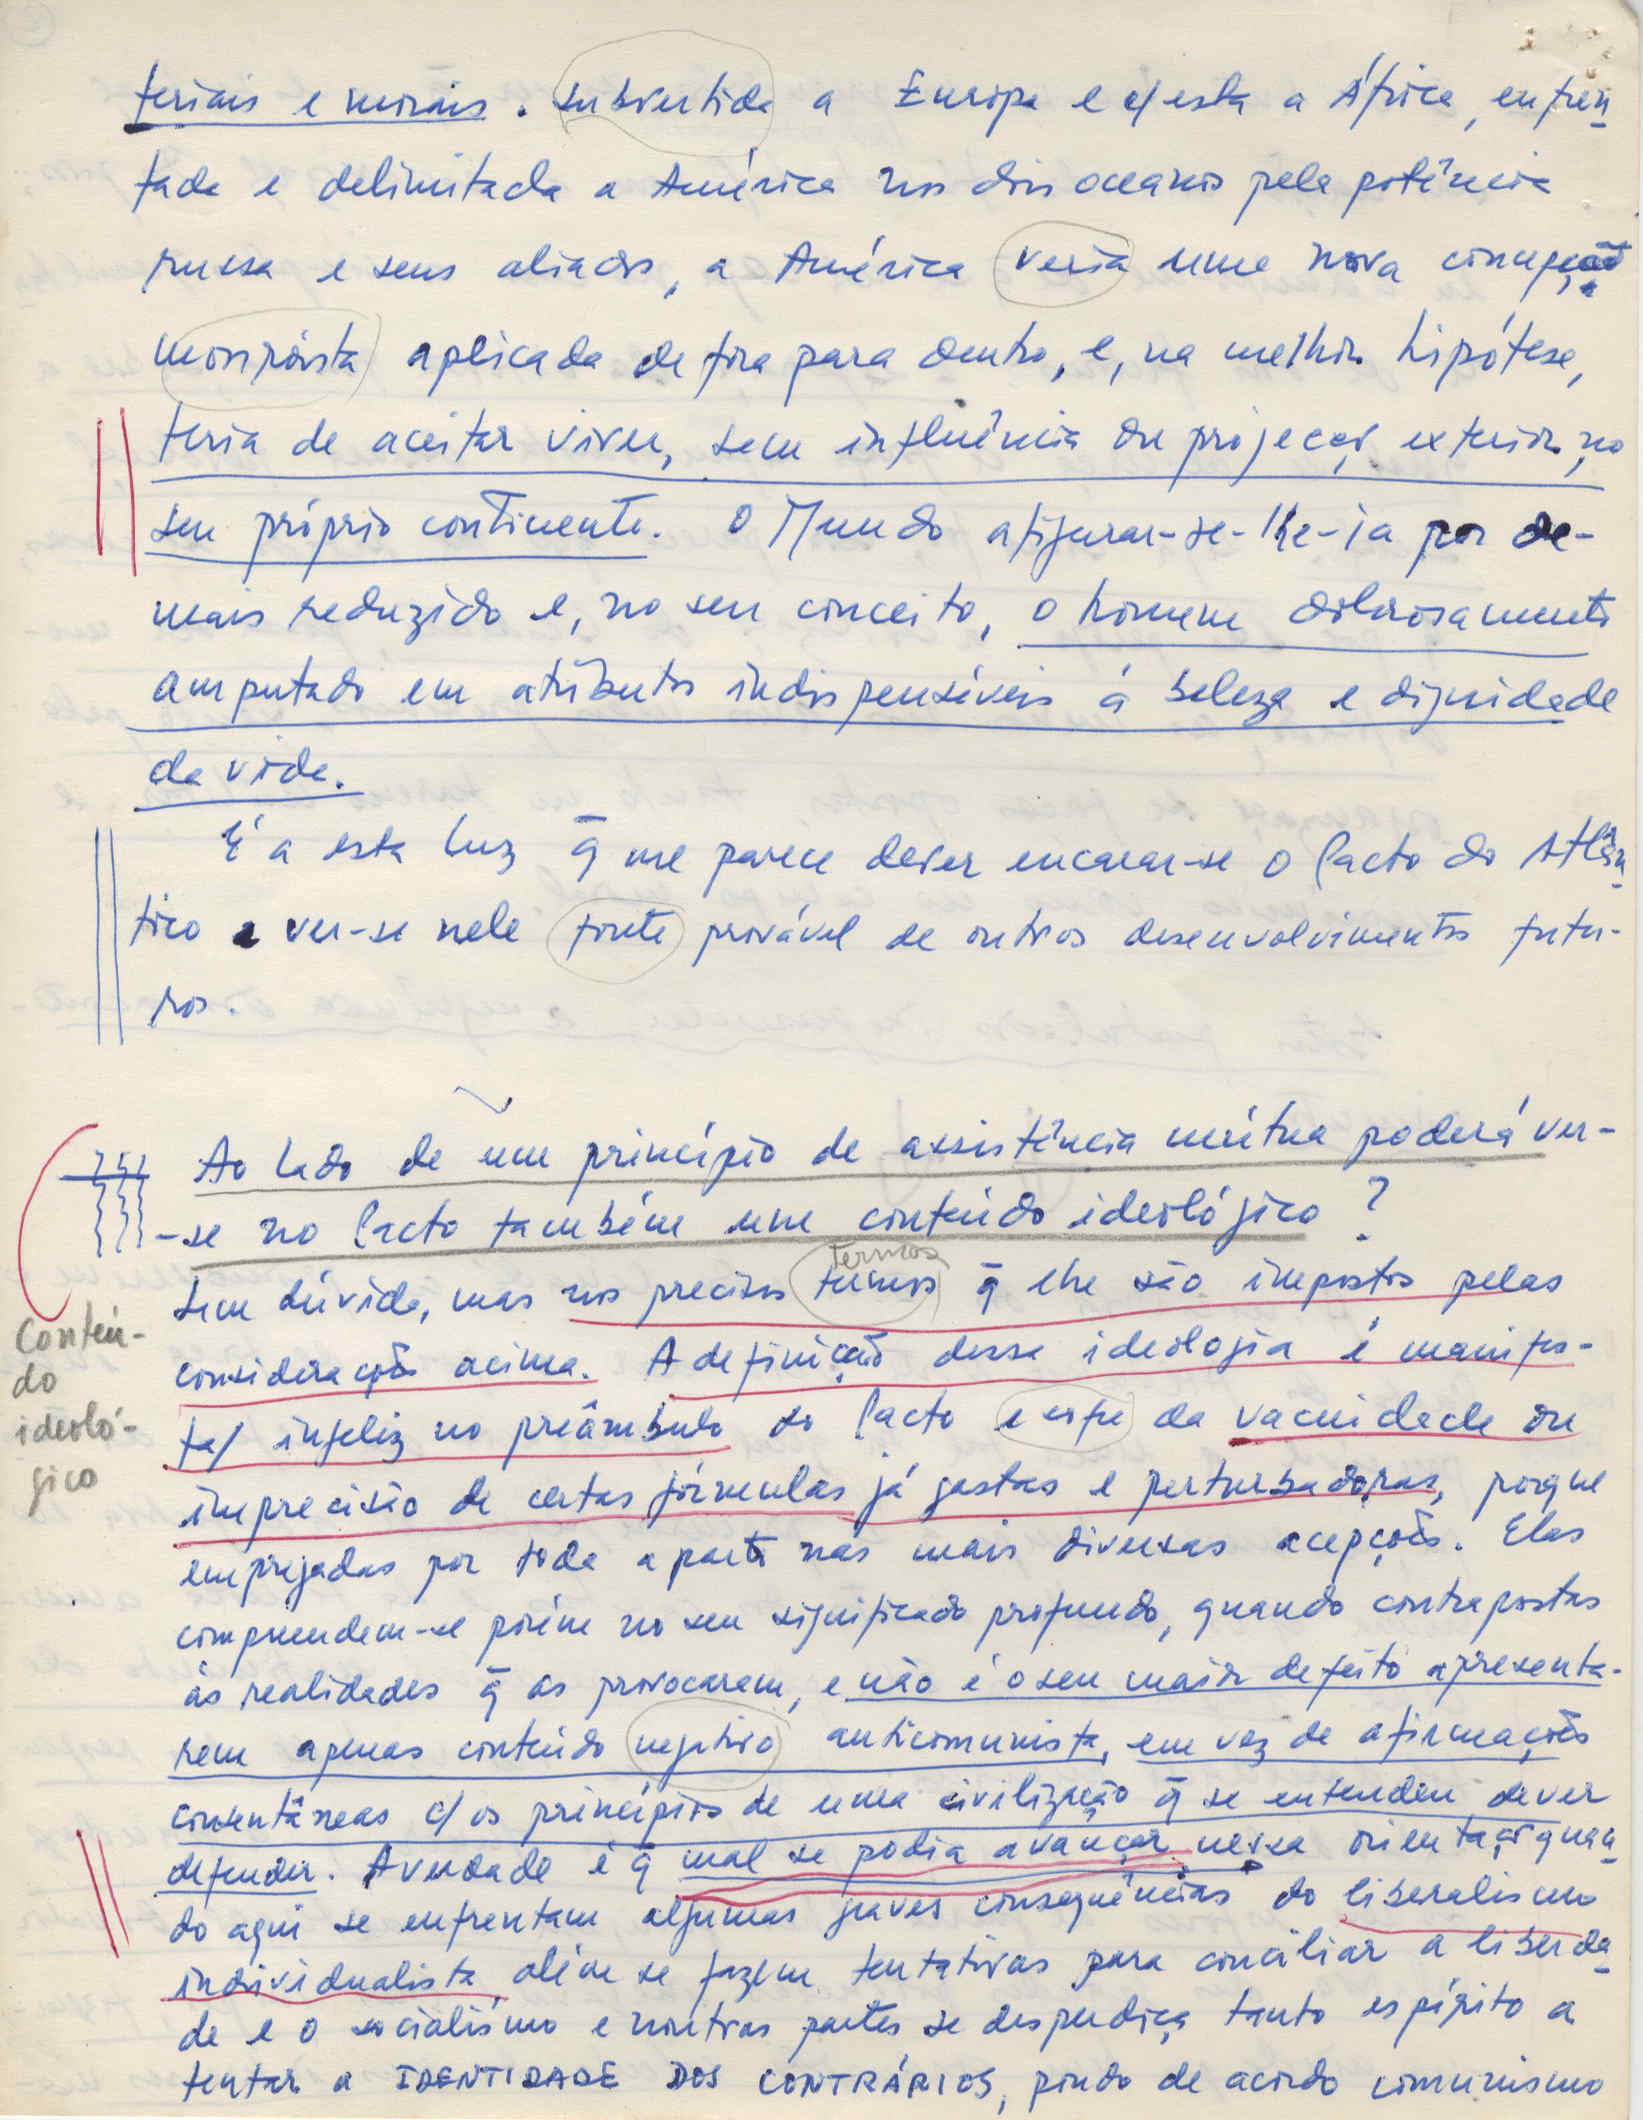 teriais e morais. Subvertida a Europa e c/ esta a África, enfren
tada e delimitada a América nos dois oceanos pela potência
russa e seus aliados, a América veria uma nova concepção
monroista aplicada de fora para dentro, e, na melhor hipótese,
teria de aceitar viver, sem influência ou projeção exterior, no
seu próprio continente. O Mundo afigurar-se-lhe-ia por de-
mais reduzido e, no seu conceito, o homem dolorosamente
amputado em atributos indispensáveis à beleza e dignidade
da vida.
É a esta luz q̄ me parece dever encarar-se o Pacto do Atlân
tico e ver-se nele fonte provável de outros desenvolvimentos futu-
ros.
Ao lado de um princípio de assistência mútua poderá ver-
-se no Pacto também um conteúdo ideológico?
termos
Sem dúvida, mas nos precisos termos q̄ lhe são impostos pelas
Conteú-
do
ideoló-
gico
considerações acima. A definição dessa ideologia é manifes-
ta/ infeliz no preâmbulo do Pacto e sofre da vacuidade ou
imprecisão de certas fórmulas já gastas e perturbadoras, porque
empregadas por toda a parte nas mais diversas acepções. Elas
compreendem-se porém no seu significado profundo, quando contrapostas
às realidades q̄ as provocaram, e não é o seu maior defeito apresenta-
rem apenas conteúdo negativo anticomunista, em vez de afirmações
consentâneas c/ os princípios de uma civilização q̄ se entendeu dever
defender. A verdade é q̄ mal se podia avançar nessa orientação quan
do aqui se enfrentam algumas graves consequências do liberalismo
individualista, além se fazem tentativas para conciliar a liberda
de e o socialismo e noutras partes se desperdiça tanto espírito a
tentar a IDENTIDADE DOS CONTRÁRIOS, pondo de acordo comunismo